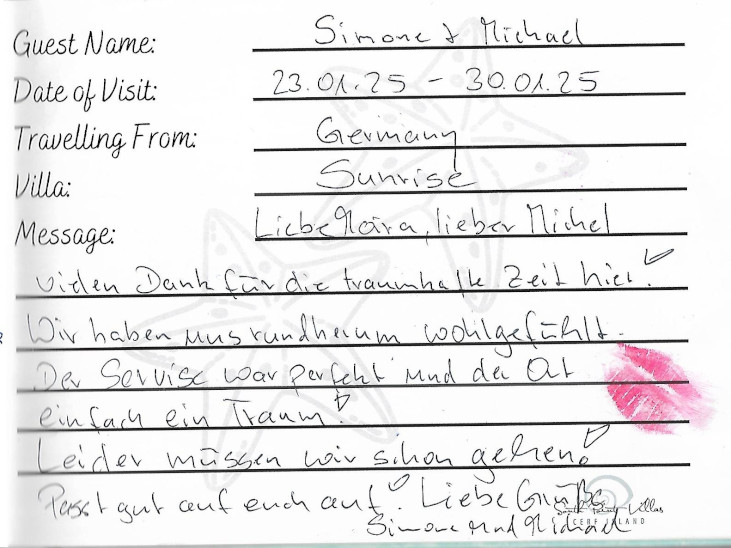 Guest Name: Simone & Michael
Date of Visit: 23.01.25 - 30.01.25
Travelling From: Germany
Villa: Sunrise
Message: Liebe Maira, lieber Michel
vielen Dank für die traumhafte Zeit hier!
Wir haben uns rundherum wohlgefühlt.
Der Servise war perfekt und der Ort
einfach ein Traum!
Leider müssen wir schon gehen!
Passt gut auf euch auf! Liebe Grüße
Simone und Michael
South Point Villas
CERF ISLAND